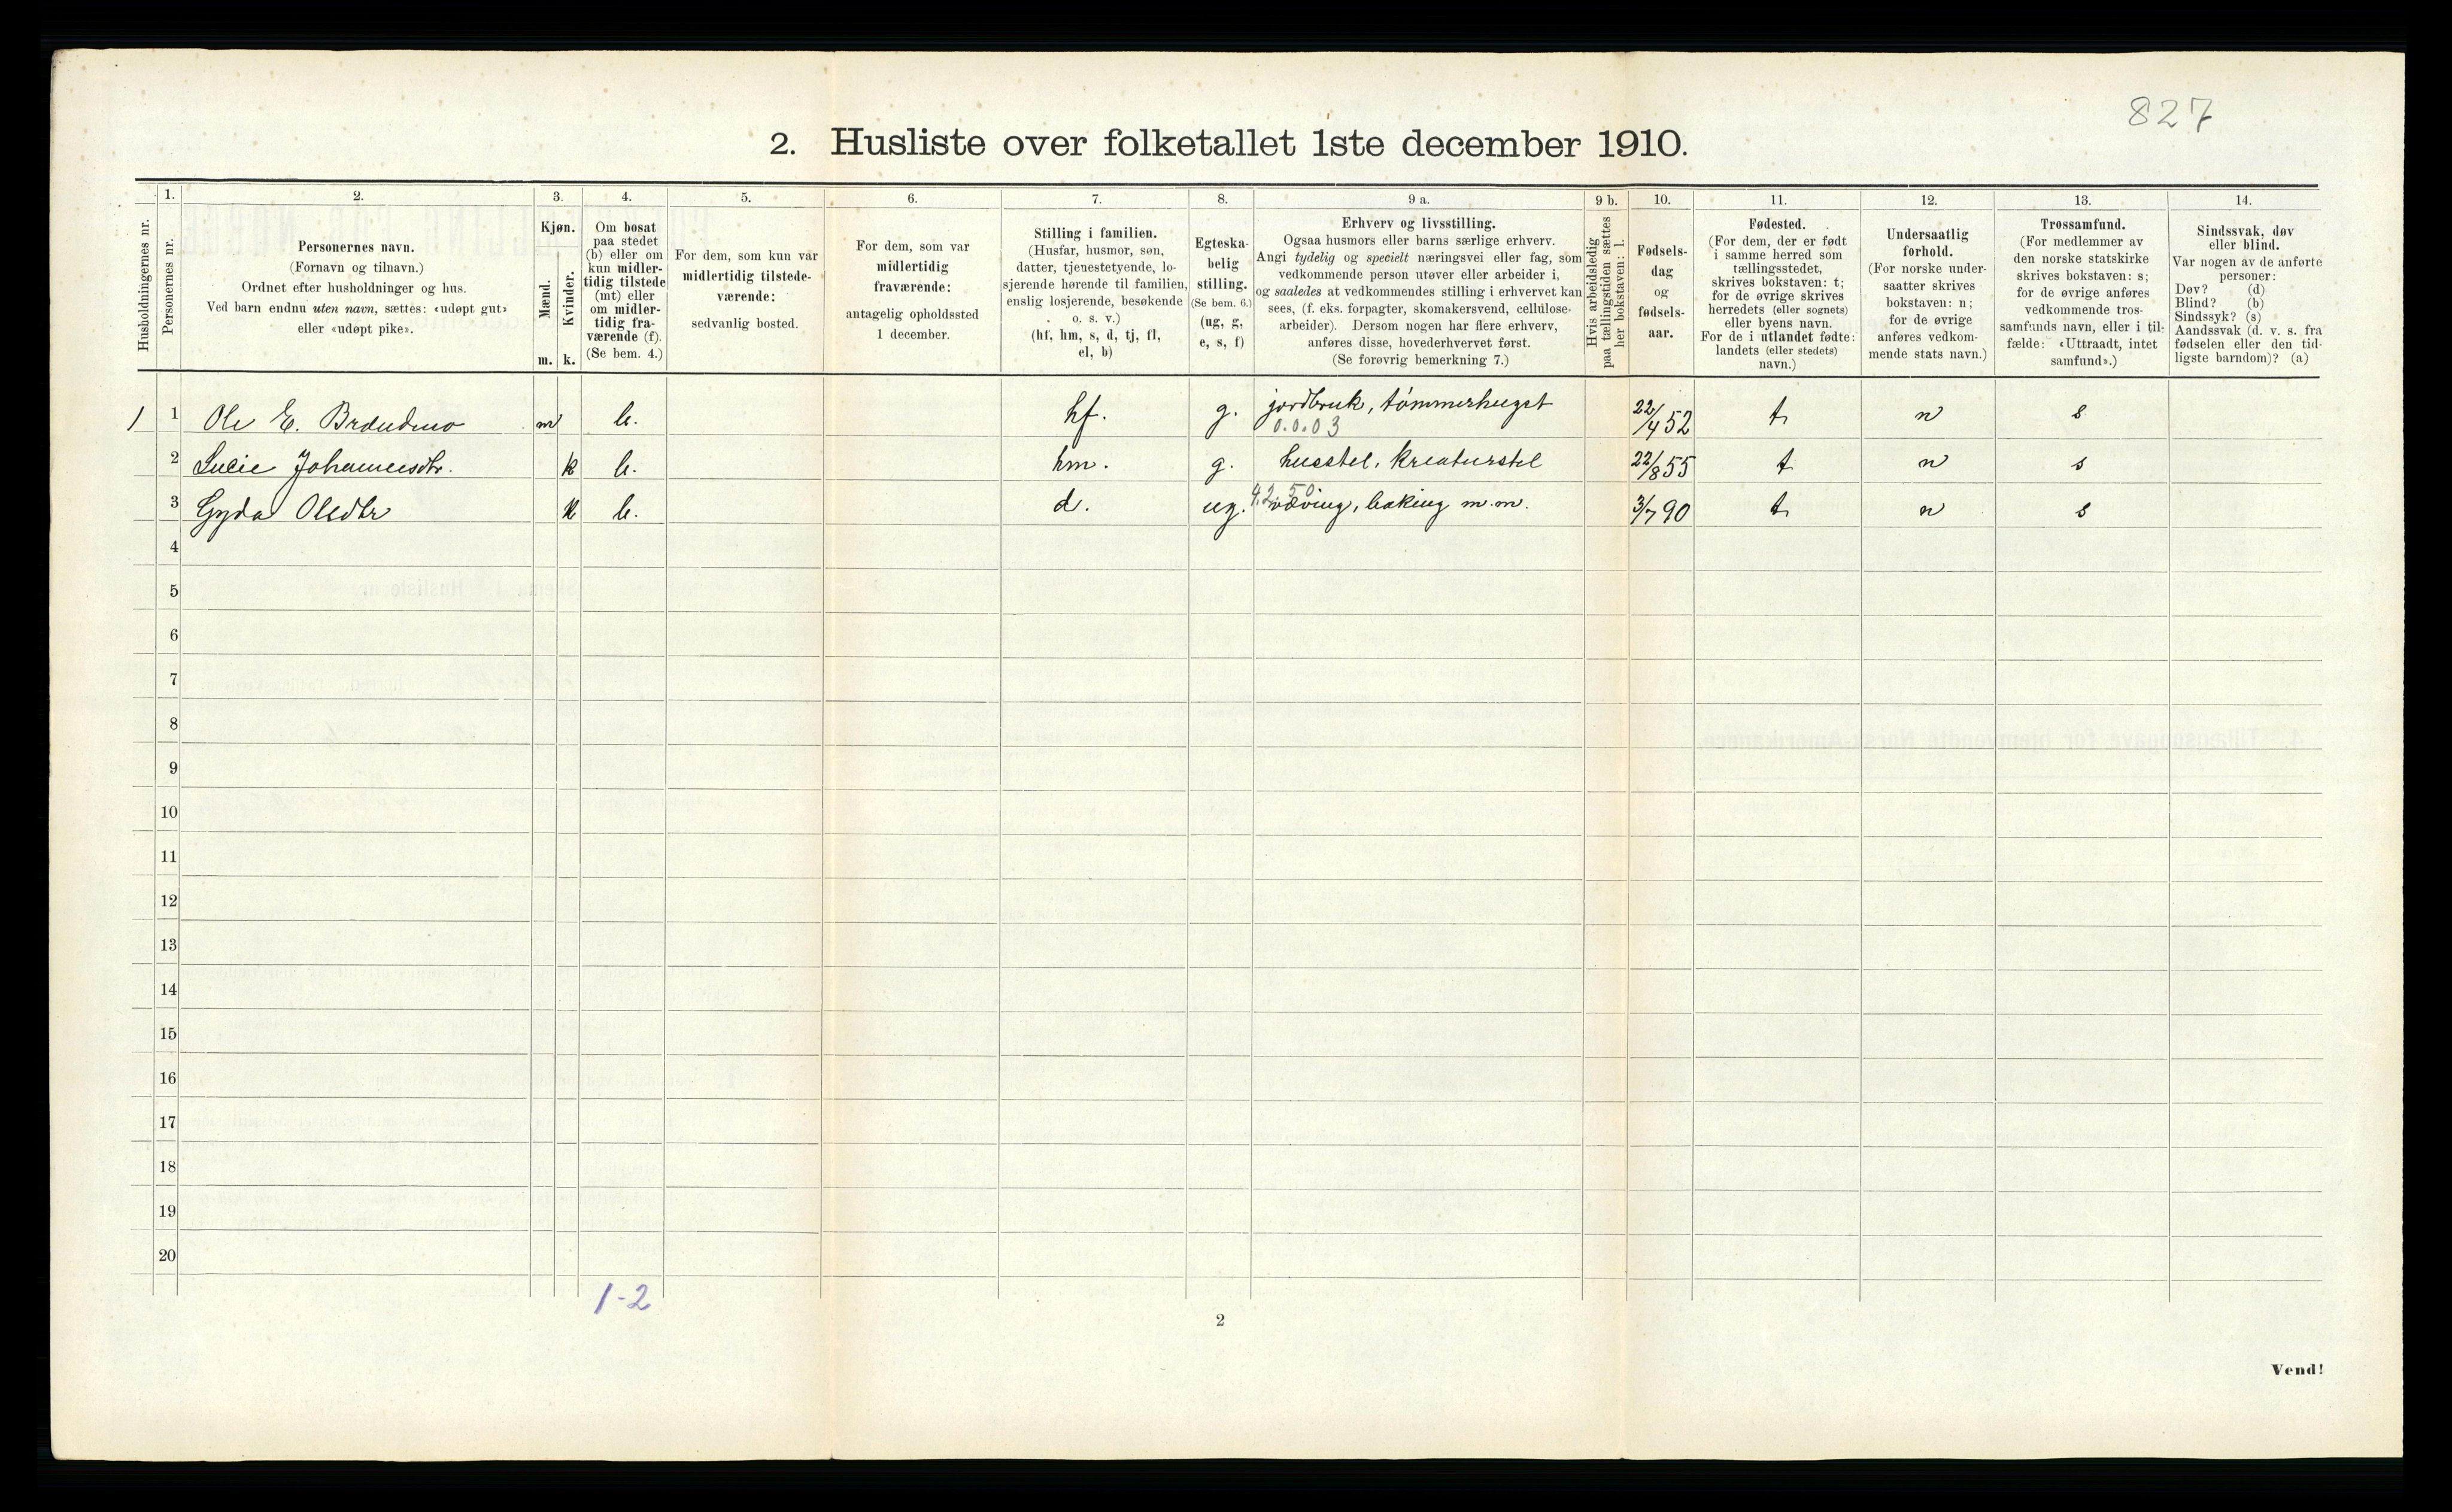 827
2. Husliste over folketallet 1ste december 1910.
Husholdningernes nr.
1.
Personernes nr.
2.
Personernes navn.
(Fornavn og tilnavn.)
Ordnet efter husholdninger og hus.
Ved barn endnu uten navn, sættes: «udøpt gut»
eller «udøpt pike».
3.
Kjøn.
Mænd.
Kvinder.
m. k.
4.
Om bosat
paa stedet
(b) eller om
kun midler-
tidig tilstede
(mt) eller
om midler-
tidig fra-
værende (f).
(Se bem. 4.)
5.
For dem, som kun var
midlertidig tilstede-
værende:
sedvanlig bosted.
6.
For dem, som var
midlertidig
fraværende:
antagelig opholdssted
1 december.
7.
Stilling i familien.
(Husfar, husmor, søn,
datter, tjenestetyende, lo-
sjerende hørende til familien,
enslig losjerende, besøkende
o. s. v.)
(hf, hm, s, d, tj, fl,
el, b)
8.
Egteska-
belig
stilling.
(Se bem. 6.)
(ug, g,
e, s, f)
9 a.
Erhverv og livsstilling.
Ogsaa husmors eller barns særlige erhverv.
Angi tydelig og specielt næringsvei eller fag, som
vedkommende person utøver eller arbeider i,
og saaledes at vedkommendes stilling i erhvervet kan
sees, (f. eks. forpagter, skomakersvend, cellulose-
arbeider). Dersom nogen har flere erhverv,
anføres disse, hovederhvervet først.
(Se forøvrig bemerkning 7.)
9 b.
Hvis arbeidsledig
paa tællingstiden sættes
her bokstaven: l.
10.
Fødsels-
dag
og
fødsels-
aar.
11.
Fødested.
(For dem, der er født
i samme herred som
tællingsstedet,
skrives bokstaven: t;
for de øvrige skrives
herredets (eller sognets)
eller byens navn.
For de i utlandet fødte:
landets (eller stedets)
navn.)
12.
Undersaatlig
forhold.
(For norske under-
saatter skrives
bokstaven: n;
for de øvrige
anføres vedkom-
mende stats navn.)
13.
Trossamfund.
(For medlemmer av
den norske statskirke
skrives bokstaven: s;
for de øvrige anføres
vedkommende tros-
samfunds navn, eller i til-
fælde: «Uttraadt, intet
samfund».)
14.
Sindssvak, døv
eller blind.
Var nogen av de anførte
personer:
Døv? (d)
Blind? (b)
Sindssyk? (s)
Aandssvak (d. v. s. fra
fødselen eller den tid-
ligste barndom)? (a)
1 1 Ole E. Brændmo m b. hf. g. jordbruk, tømmerhugst 22/4 52 t n s
0.0.03
2 Lucie Johannesdtr. k b. hm. g. husstel, kreaturstel 22/8 55 t n s
3 Gyda Olsdtr k b. d. ug. væving, baking m.m. 3/7 90 t n s
4
5
6
7
8
9
10
11
12
13
14
15
16
17
18
19
20
1-2
2
Vend!